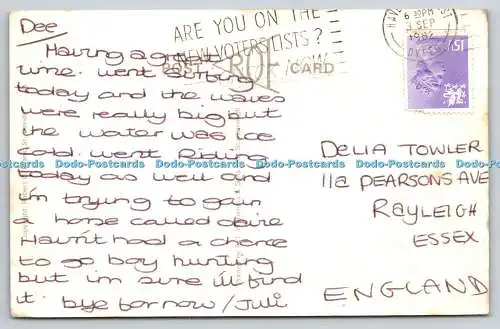 Dee
Having a great
time. went surfing
today and the waves
were really big but
the water was ice
cold. went Riding
today as well and
i'm trying to gain
a horse called claire
Havn't had a chance
to go boy hunting
but im sure i'll find
it. bye for now / Juli
ARE YOU ON THE
NEW VOTERS LISTS?
POST CARD
6 30PM
3 SEP
1982
DYFED
15½
DELIA TOWLER
11a PEARSONS AVE
RAYLEIGH
ESSEX
ENGLAND
Dodo-Postcards Dodo-Postcards Dodo-Postcards Dodo-Postcards Dodo-Postcards Dodo-Postcards